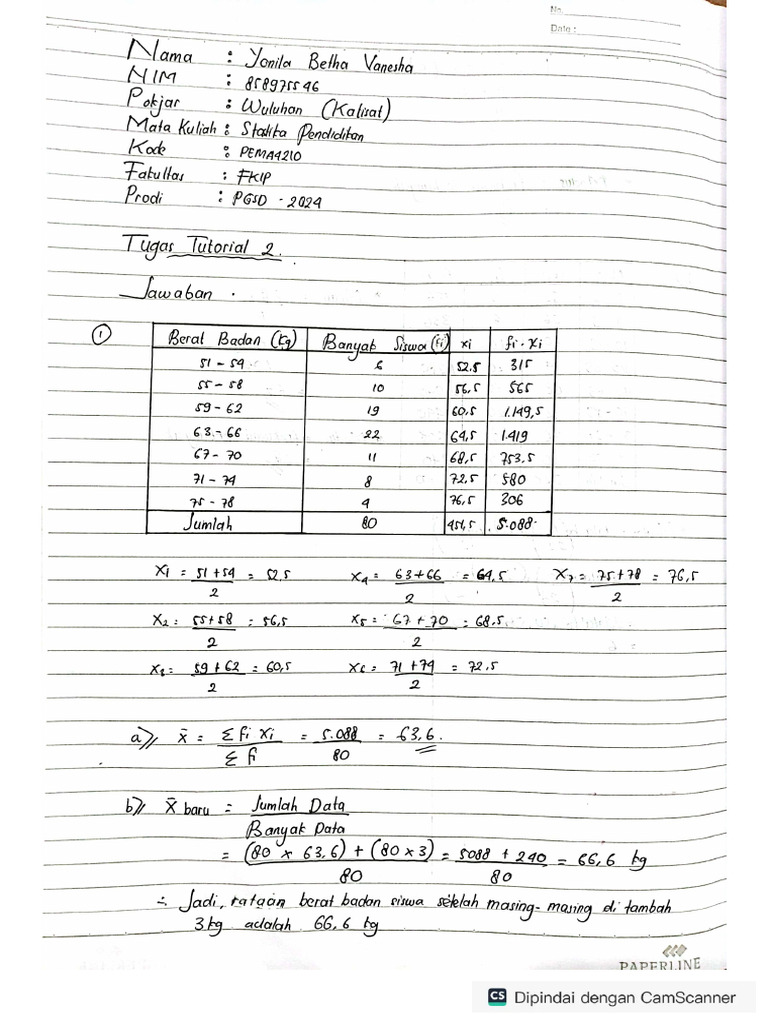 No.
Date :
Nama : Yonila Betha Vanesha
NIM : 858975546
Pokjar : Wuluhan (Kalisat)
Mata Kuliah : Statika Pendidikan
Kode : PEMA4210
Fakultas : FKIP
Prodi : PGSD - 2024
Tugas Tutorial 2.
Jawaban .
1 Berat Badan (kg) Banyak Siswa (fi) xi fi . xi
51 - 54 6 52.5 315
55 - 58 10 56,5 565
59 - 62 19 60,5 1.149,5
63 - 66 22 64,5 1.419
67 - 70 11 68,5 753.5
71 - 74 8 72,5 580
75 - 78 4 76,5 306
Jumlah 80 451,5 5.088
X1 = 51 + 54 / 2 = 52.5 X4 = 63 + 66 / 2 = 64,5 X7 = 75 + 78 / 2 = 76,5
X2 = 55 + 58 / 2 = 56,5 X5 = 67 + 70 / 2 = 68.5
X3 = 59 + 62 / 2 = 60,5 X6 = 71 + 74 / 2 = 72.5
a) x̄ = Σ fi xi / Σ fi = 5.088 / 80 = 63,6.
b) X̄ baru = Jumlah Data / Banyak Data
= (80 × 63,6) + (80 × 3) / 80 = 5088 + 240 / 80 = 66,6 kg
∴ Jadi, rataan berat badan siswa setelah masing-masing di tambah
3 kg adalah 66,6 kg
PAPERLINE
CS Dipindai dengan CamScanner